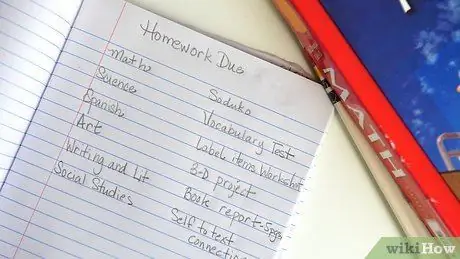 Homework Due
Maths Soduko
Science Vocabulary Test
Spanish Label items Workshet
Art 3-D project
Writing and Lit Book report-5pgs
Social Studies Self to text
MATH
wikiHow